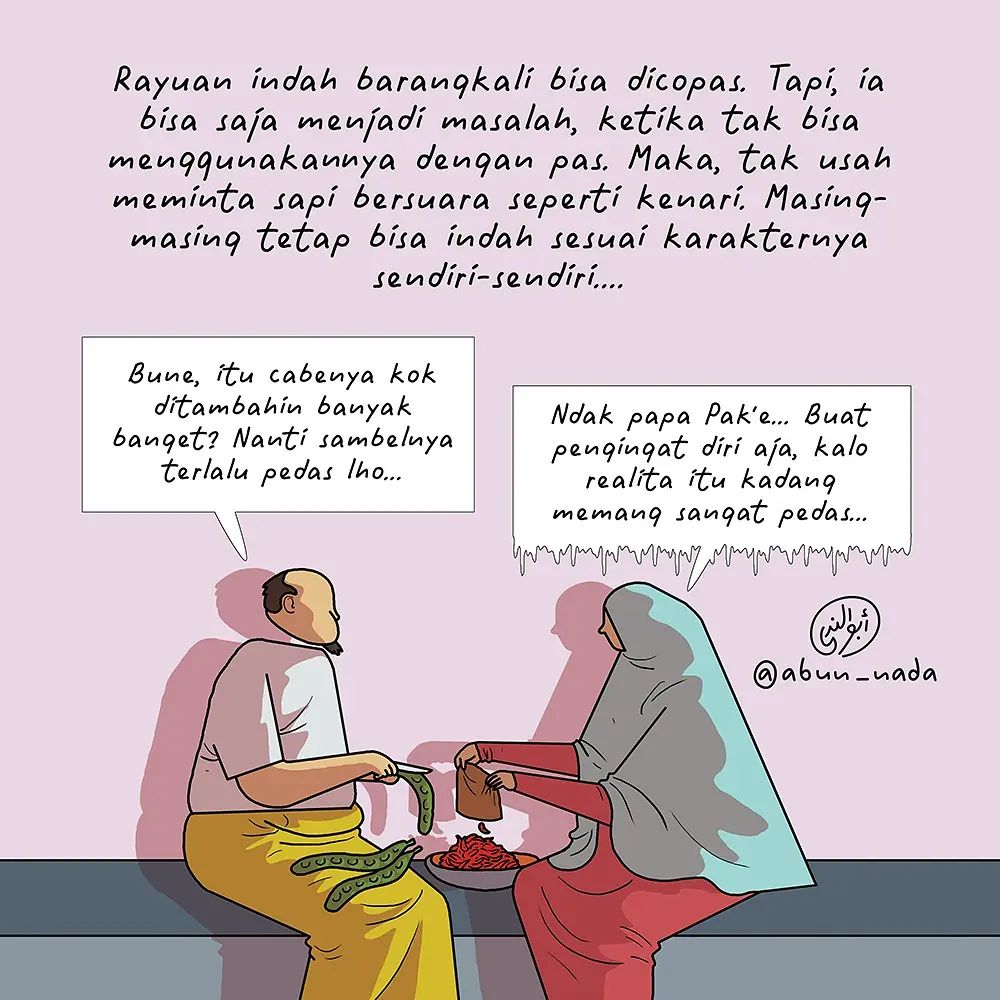 Rayuan indah barangkali bisa dicopas. Tapi, ia
bisa saja menjadi masalah, ketika tak bisa
menggunakannya dengan pas. Maka, tak usah
meminta sapi bersuara seperti kenari. Masing-
masing tetap bisa indah sesuai karakternya
sendiri-sendiri....
Bune, itu cabenya kok
ditambahin banyak
banget? Nanti sambelnya
terlalu pedas lho...
Ndak papa Pak'e... Buat
pengingat diri aja, kalo
realita itu kadang
memang sangat pedas...
أبو الندى
@abun_nada